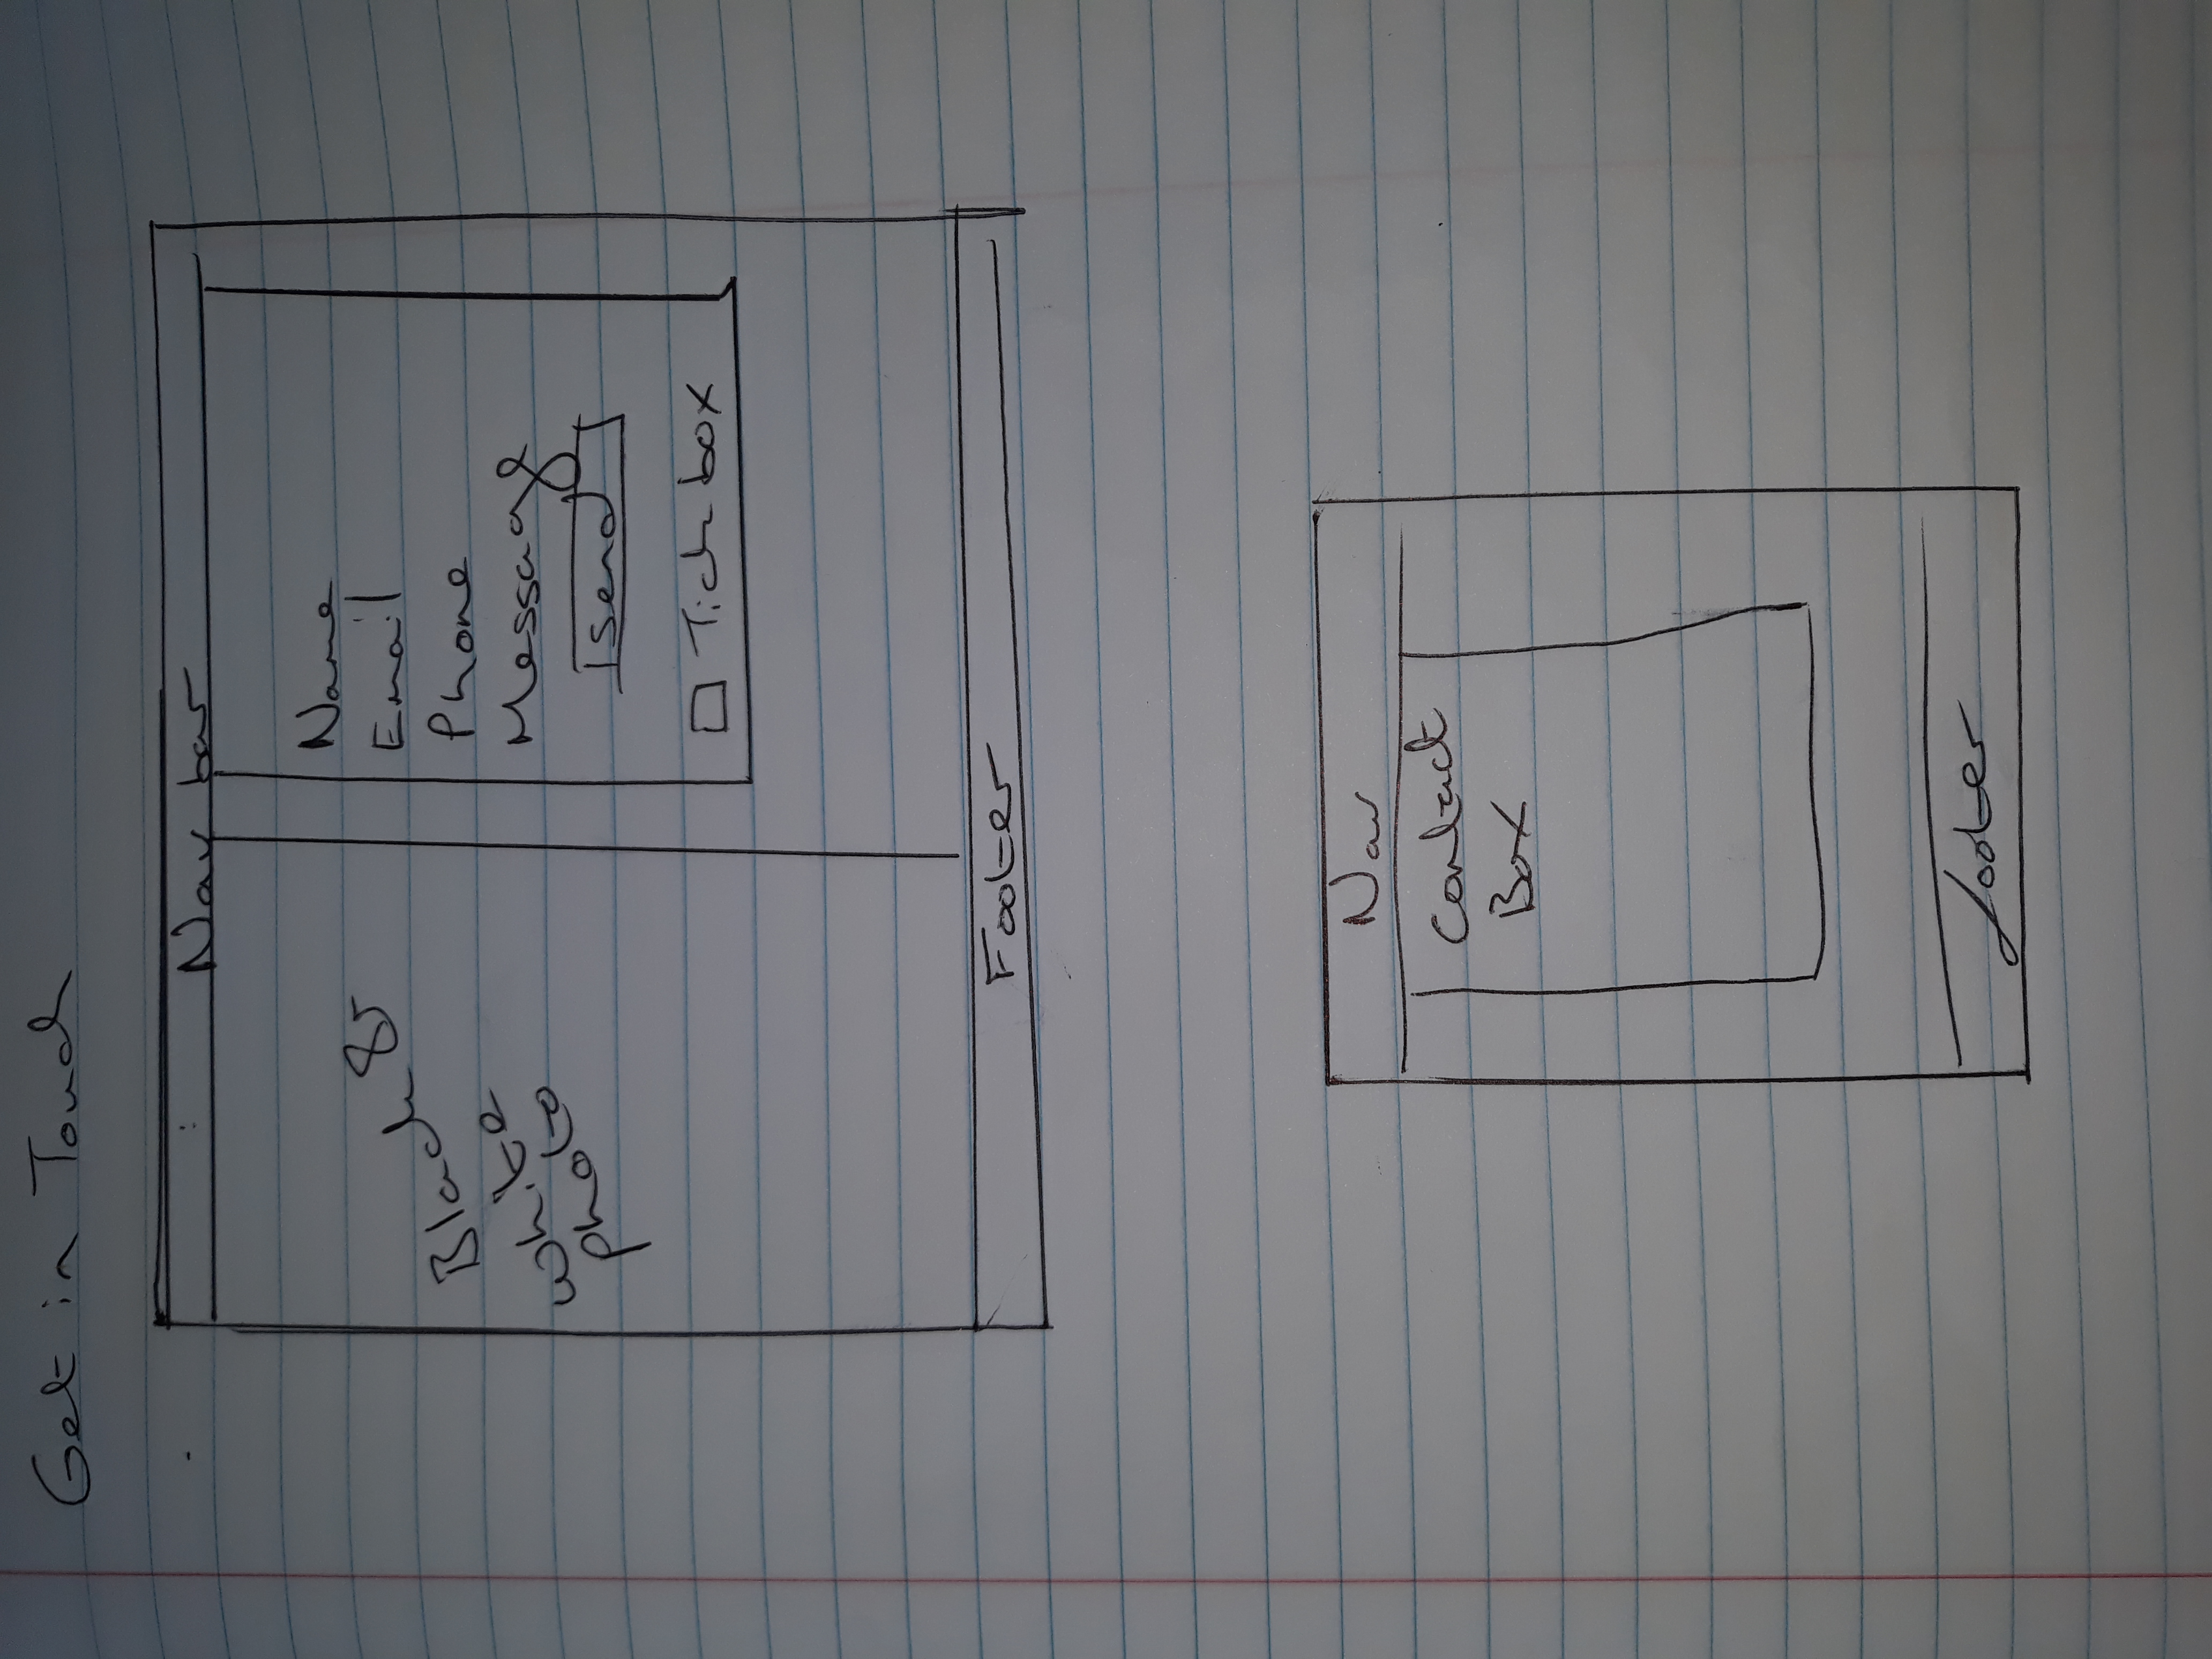 Get in Touch
Nav bar
Black &
white
photo
Name
Email
Phone
Message
Send
Tick box
Footer
Nav
Contact
Box
footer